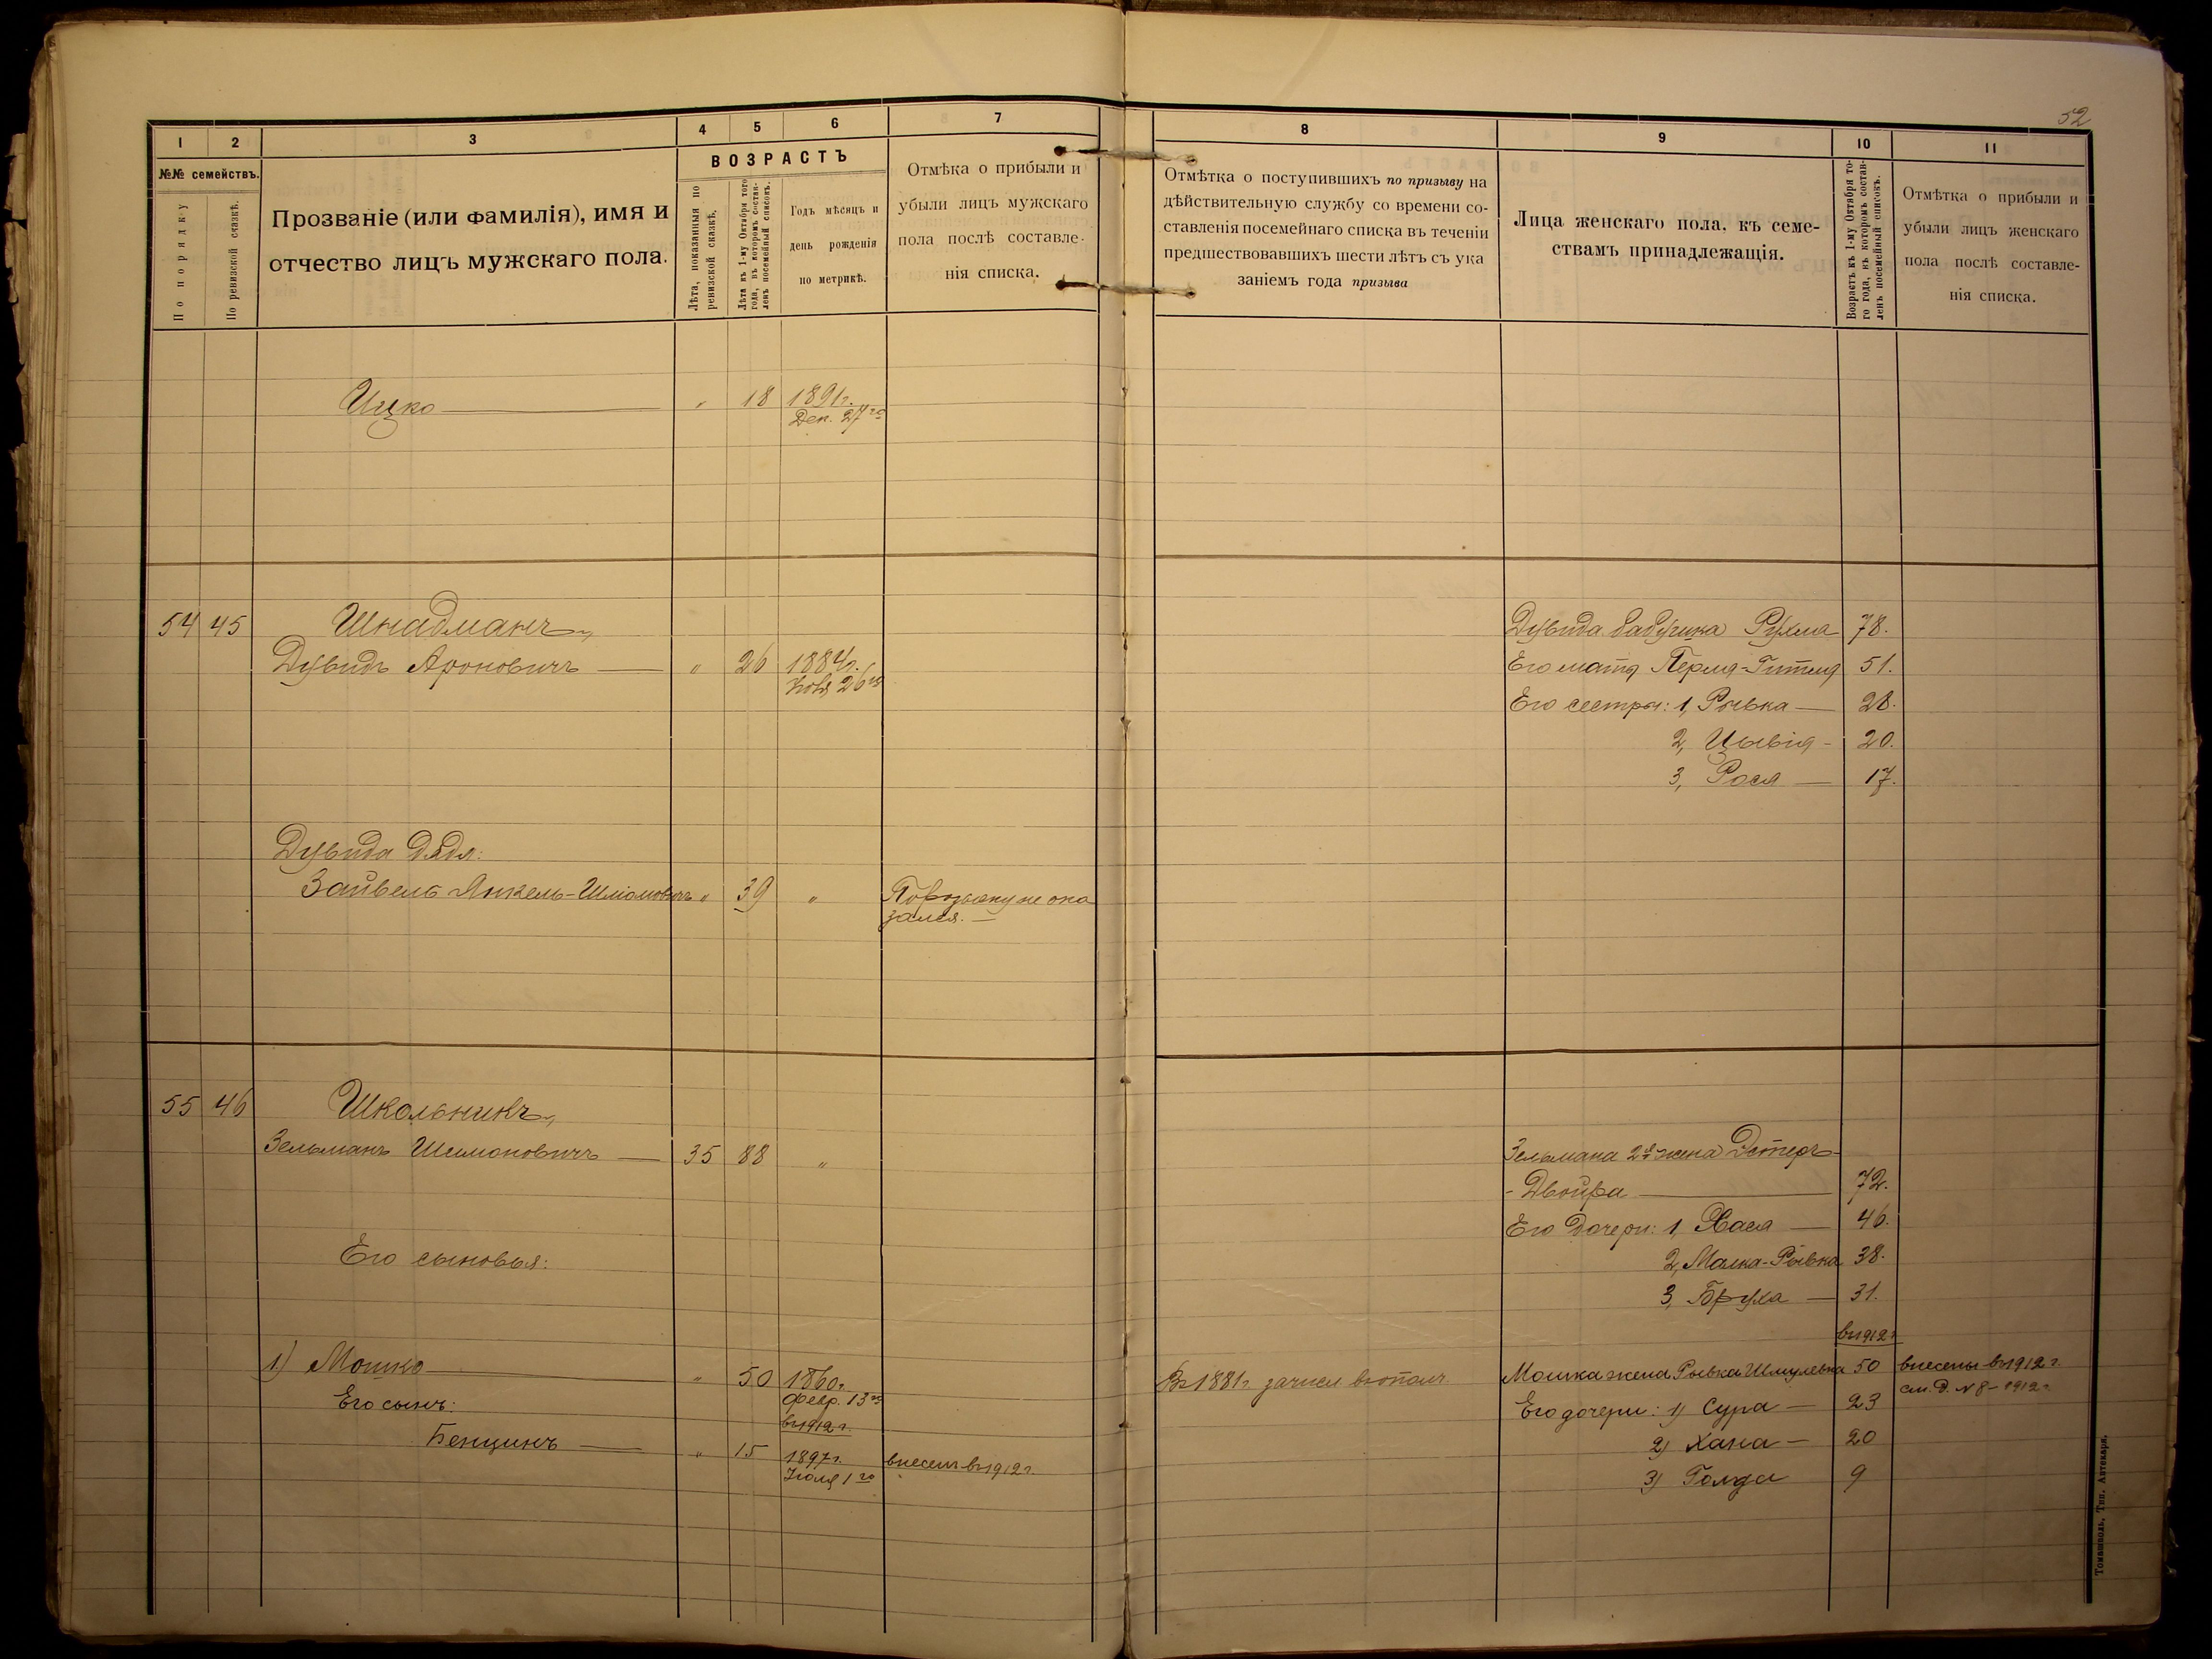 52
1 2 3 4 5 6 7
№№ семействъ.
По порядку
По ревизской сказкѣ.
Прозваніе (или фамилія), имя и
отчество лицъ мужскаго пола.
ВОЗРАСТЪ
Лѣта, показанныя по
ревизской сказкѣ,
Лѣта къ 1-му Октября того
года, въ которомъ состав-
ленъ посемейный списокъ.
Годъ мѣсяцъ и
день рожденія
по метрикѣ.
Отмѣка о прибыли и
убыли лицъ мужскаго
пола послѣ составле-
нія списка.
8 9 10 11
Отмѣтка о поступившихъ по призыву на
дѣйствительную службу со времени со-
ставленія посемейнаго списка въ теченіи
предшествовавшихъ шести лѣтъ съ ука
заніемъ года призыва
Лица женскаго пола, къ семе-
ствамъ принадлежащія.
Возрастъ къ 1-му Октября то-
го года, къ которомъ состав-
ленъ посемейный списокъ.
Отмѣтка о прибыли и
убыли лицъ женскаго
пола послѣ составле-
нія списка.
Ицко — " 18 1891г.
Дек. 27го
54 45 Шнадманъ,
Дувидъ Ароновичъ — " 26 1884г.
Ноя 26го
Дувида дядя:
Зайвель Янкель-Шліомовичъ " 39 " По розыску не ока
зался. —
55 46 Школьникъ,
Зельманъ Шимоновичъ — 35 88 "
Его сыновья:
1) Мошко — " 50 1860г.
Февр. 13го
Его сынъ:
въ 1912г.
Бенціинъ — " 15 1897г. внесенъ въ 1912г.
Іюля 1го
Дувида бабушка Рухля 78.
Его мать Перля-Гитля 51.
Его сестры: 1, Рывка — 28.
2, Цывія - 20.
3, Рася — 17.
Зельмана 2я жена Эстеръ-
- Двойра — 72.
Его дочери: 1, Хася — 46.
2, Малка-Рывка 38.
3, Бруха — 31.
въ 1912г.
Въ 1881г. зачисл. въ опол.
Мошка жена Рывка Шмулевна 50 внесены въ 1912г.
см. д. № 8 - 1912г.
Его дочери: 1) Сура — 23
2) Хана — 20
3) Голда 9
Томашполь, Тип. Аптекаря.